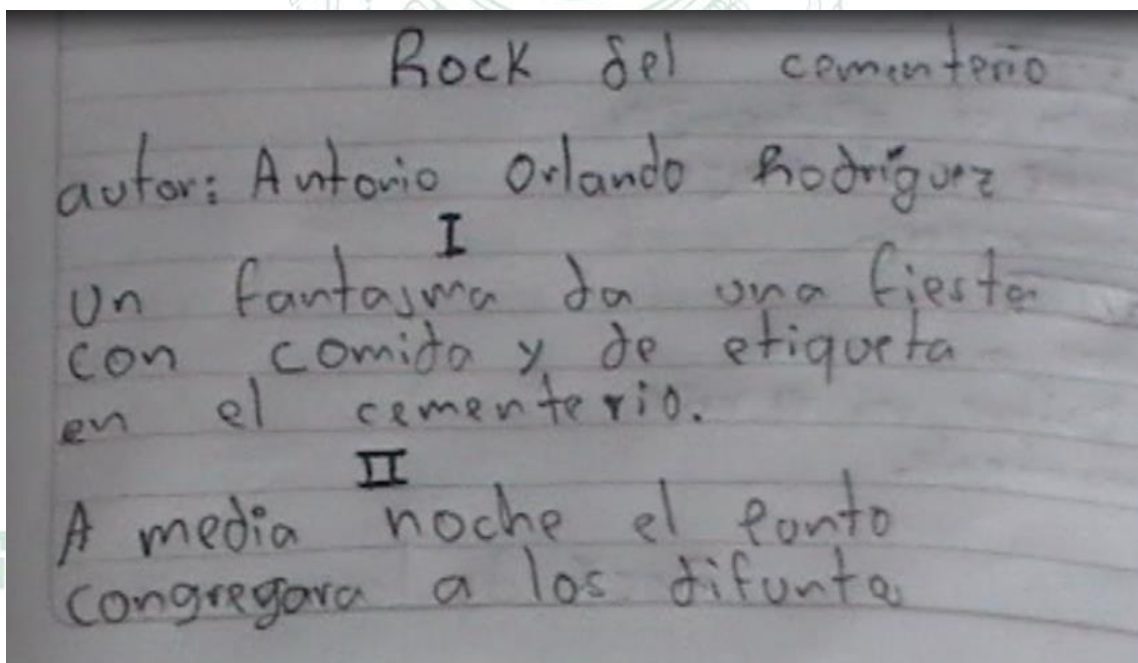 Rock del cementerio
autor: Antonio Orlando Rodríguez
I
Un fantasma da una fiesta
con comida y de etiqueta
en el cementerio.
II
A media noche el punto
congregara a los difunta